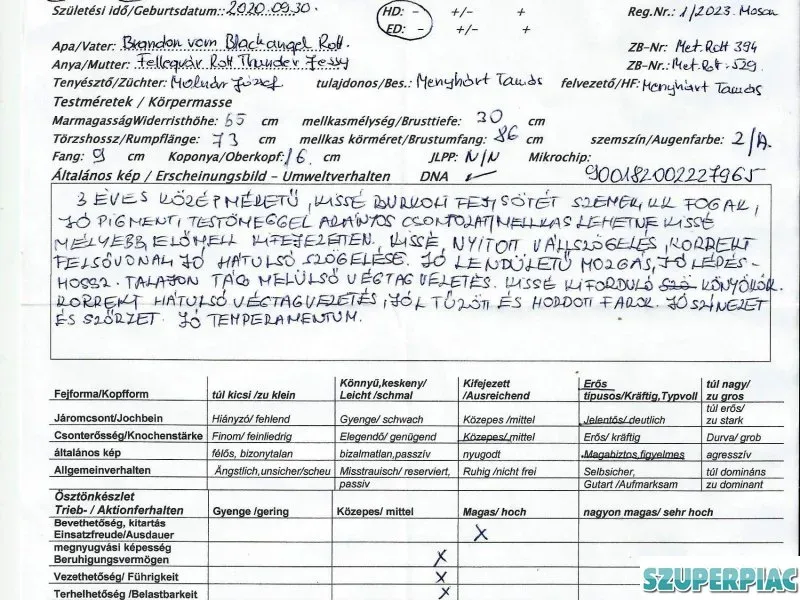 Születési idő/Geburtsdatum:: 2020.09.30. HD: - +/- + Reg.Nr.: 1/2023. Moson
ED: - +/- +
Apa/Vater: Brandon vom Blackangel Rott. ZB-Nr: Met.Rott 394
Anya/Mutter: Fellegvár Rott Thunder Jessy ZB-Nr: Met.Rott-529.
Tenyésztő/Züchter: Molnár József tulajdonos/Bes.: Menyhárt Tamás felvezető/HF: Menyhárt Tamás
Testméretek / Körpermasse
MarmagasságWiderristhöhe: 65 cm mellkasmélység/Brusttiefe: 30 cm
Törzshossz/Rumpflänge: 73 cm mellkas körméret/Brustumfang: 86 cm szemszín/Augenfarbe: 2/A.
Fang: 9 cm Koponya/Oberkopf: 16 cm JLPP: N/N Mikrochip:
Általános kép / Erscheinungsbild - Umweltverhalten DNA ✓ 900182002227965
3 ÉVES KÖZÉPMÉRETŰ, KISSÉ BURKOLT FEJ, SÖTÉT SZEMEK, KK FOGAK,
JÓ PIGMENT, TESTÖMEGGEL ARÁNYOS CSONTOZAT, MELLKAS LEHETNE KISSÉ
MÉLYEBB, ELŐMELL KIFEJEZETEN, KISSÉ NYITOTT VÁLLSZÖGELÉS, KORREKT
FELSŐVONAL, JÓ HÁTULSÓ SZÖGELÉSE. JÓ LENDÜLETŰ MOZGÁS, JÓ LÉPÉS-
HOSSZ. TALAJON TÁG MELÜLSŐ VÉGTAGVEZETÉS. KISSÉ KIFORDULÓ KÖNYÖKÖK.
KORREKT HÁTULSÓ VÉGTAGVEZETÉS, JÓL TŰZÖTT ÉS HORDOTT FAROK. JÓ SZÍNEZET
ÉS SZŐRZET. JÓ TEMPERAMENTUM.
Fejforma/Kopfform túl kicsi /zu klein Könnyű,keskeny/ Leicht /schmal Kifejezett /Ausreichend Erős típusos/Kräftig,Typvoll túl nagy/ zu gros
Járomcsont/Jochbein Hiányzó/ fehlend Gyenge/ schwach Közepes /mittel Jelentős/ deutlich túl erős/ zu stark
Csonterősség/Knochenstärke Finom/ feinliedrig Elegendő/ genügend Közepes/ mittel Erős/ kräftig Durva/ grob
általános kép félős, bizonytalan bizalmatlan,passzív nyugodt Magabiztos,figyelmes agresszív
Allgemeinverhalten Ängstlich,unsicher/scheu Misstrauisch/ reserviert, passiv Ruhig /nicht frei Selbsicher, Gutart /Aufmarksam túl domináns zu dominant
Ösztönkészlet
Trieb- / Aktionferhalten Gyenge /gering Közepes/ mittel Magas/ hoch nagyon magas/ sehr hoch
Bevethetőség, kitartás
Einsatzfreude/Ausdauer X
megnyugvási képesség
Beruhigungsvermögen X
Vezethetőség/ Führigkeit X
Terhelhetőség /Belastbarkeit X
SZUPERPIAC